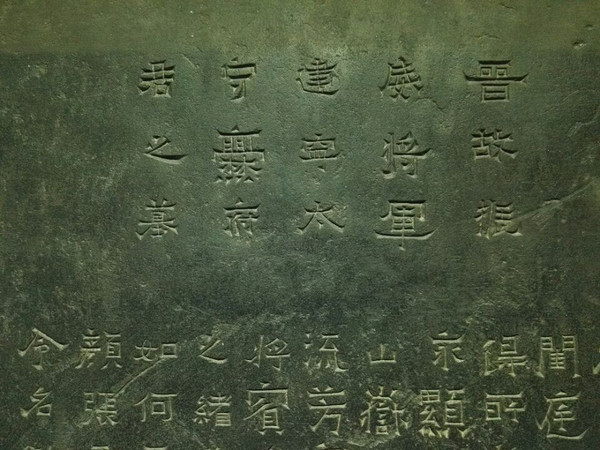 晉故振
威將軍
建寧太
守爨府
君之墓
閨庭
得所
永顯
山嶽
流芳
將賓
之緒
如何
顏張
令名